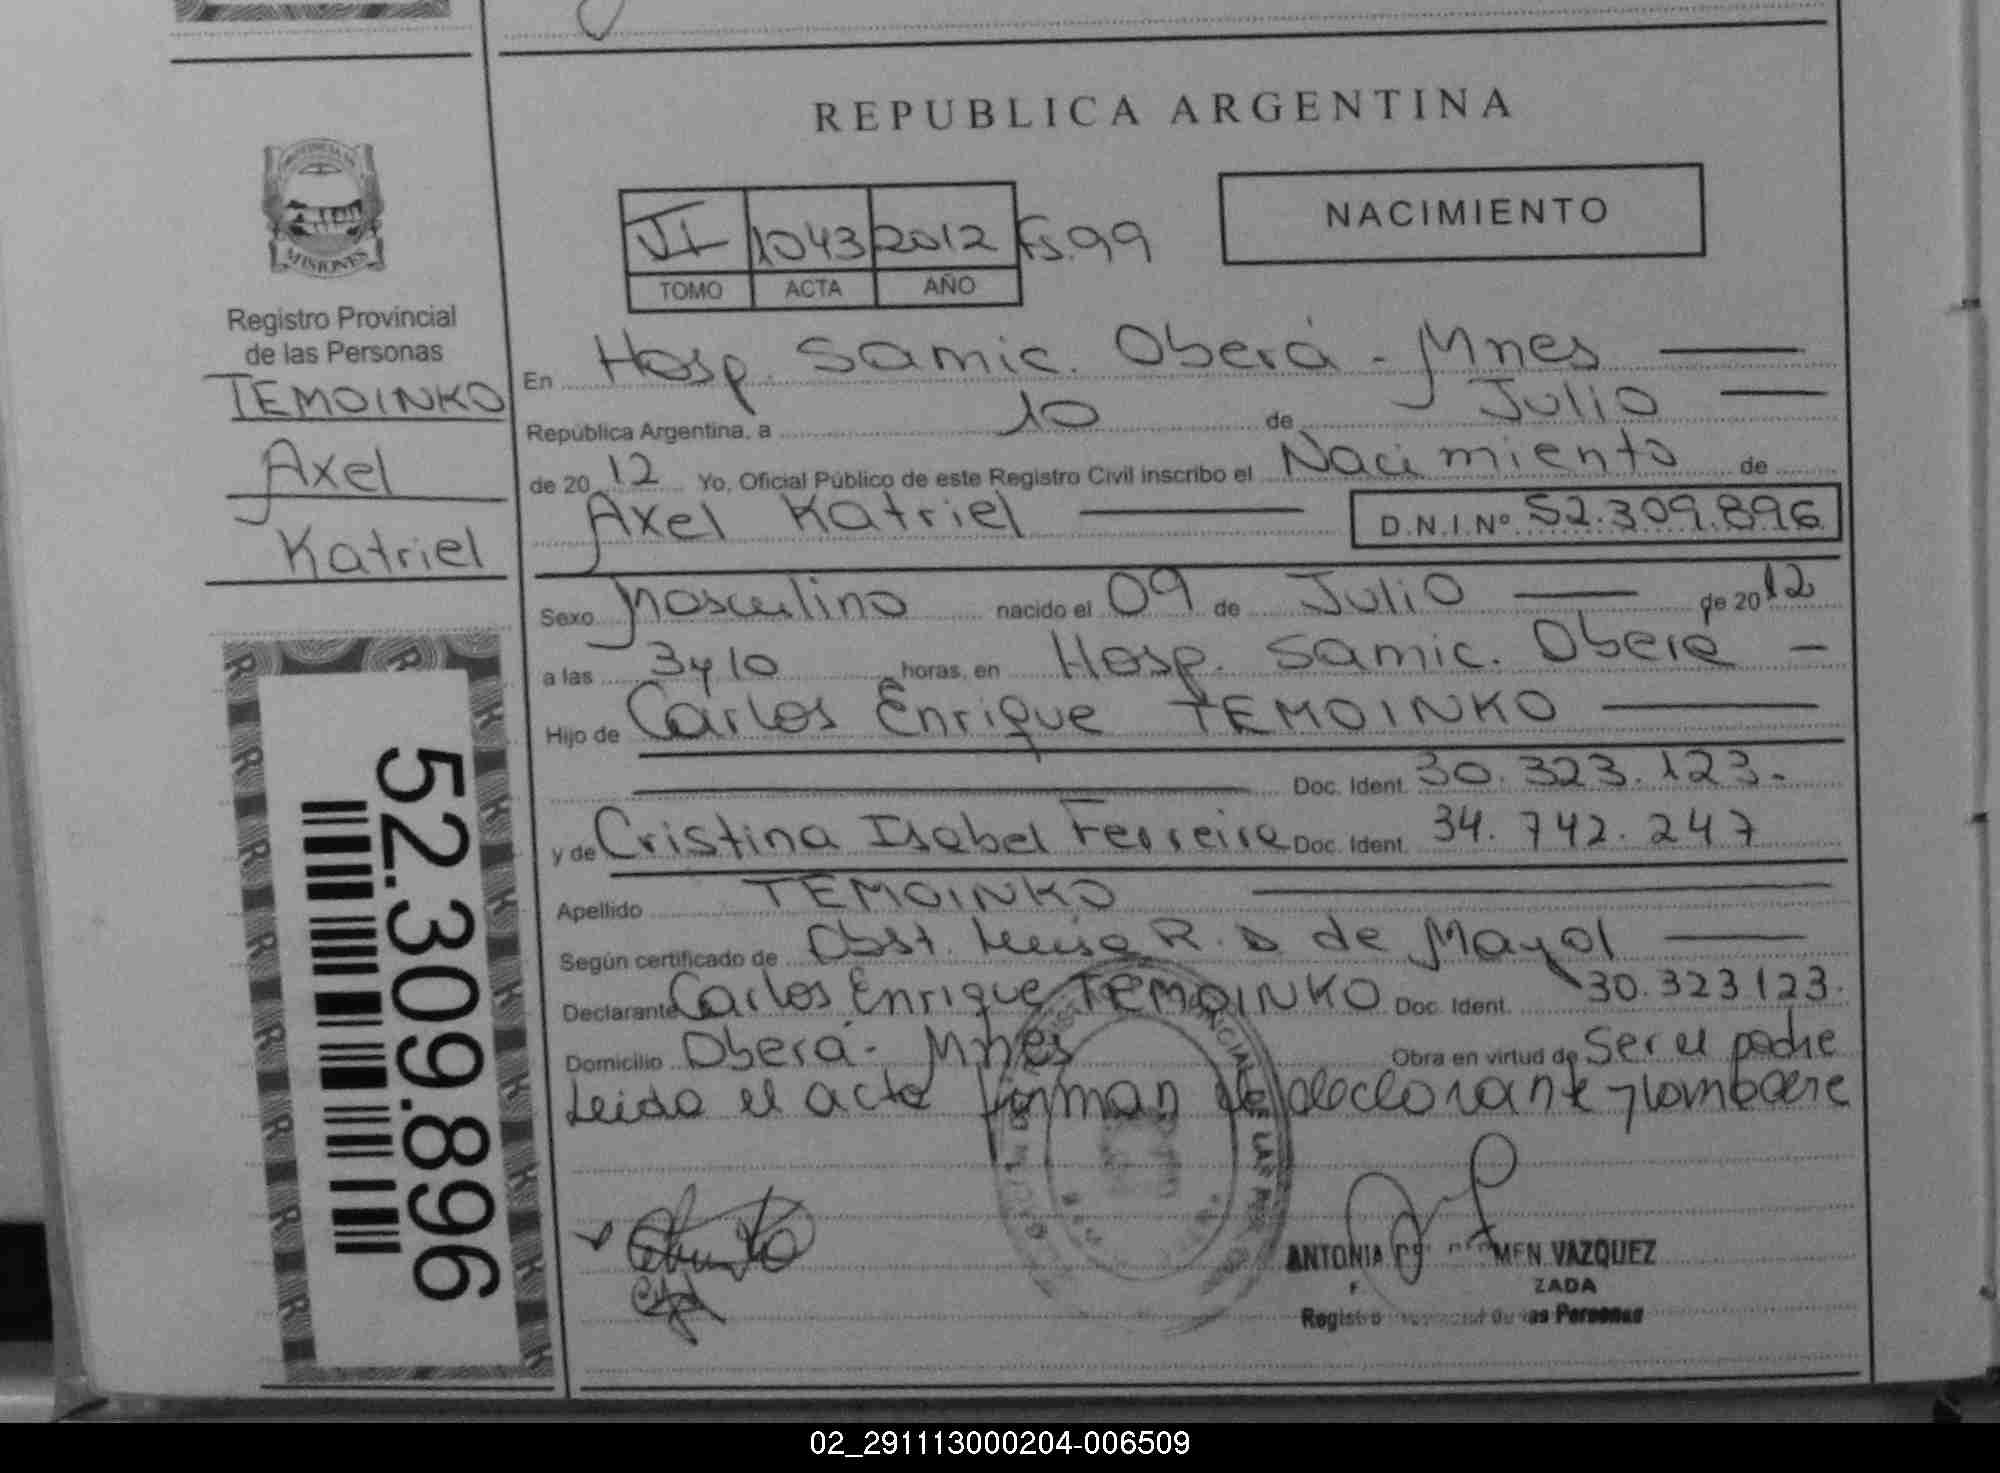 REPUBLICA ARGENTINA
PROVINCIA DE
MISIONES
Registro Provincial
de las Personas
TEMOINKO
Axel
Katriel
52.309.896
VI 1043 2012 Fs.99
TOMO ACTA AÑO
NACIMIENTO
En Hosp. Samic. Oberá - Mnes
República Argentina, a 10 de Julio
de 2012 Yo, Oficial Público de este Registro Civil inscribo el Nacimiento de
Axel Katriel D.N.I.Nº 52.309.896
Sexo Masculino nacido el 09 de Julio de 2012
a las 3 y 10 horas, en Hosp. Samic. Oberá
Hijo de Carlos Enrique TEMOINKO
Doc. Ident. 30.323.123.
y de Cristina Isabel Ferreira Doc. Ident. 34.742.247
Apellido TEMOINKO
Según certificado de Obst. Luisa R. D de Mayol
Declarante Carlos Enrique TEMOINKO Doc. Ident. 30.323123.
Domicilio Oberá - Mnes Obra en virtud de Ser el padre
Leida el acta firman el declarante y compadre
ANTONIA MEN VAZQUEZ
ZADA
Registro de las Personas
02_291113000204-006509